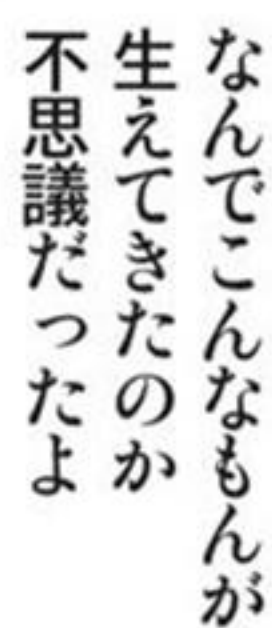 なんでこんなもんが
生えてきたのか
不思議だったよ